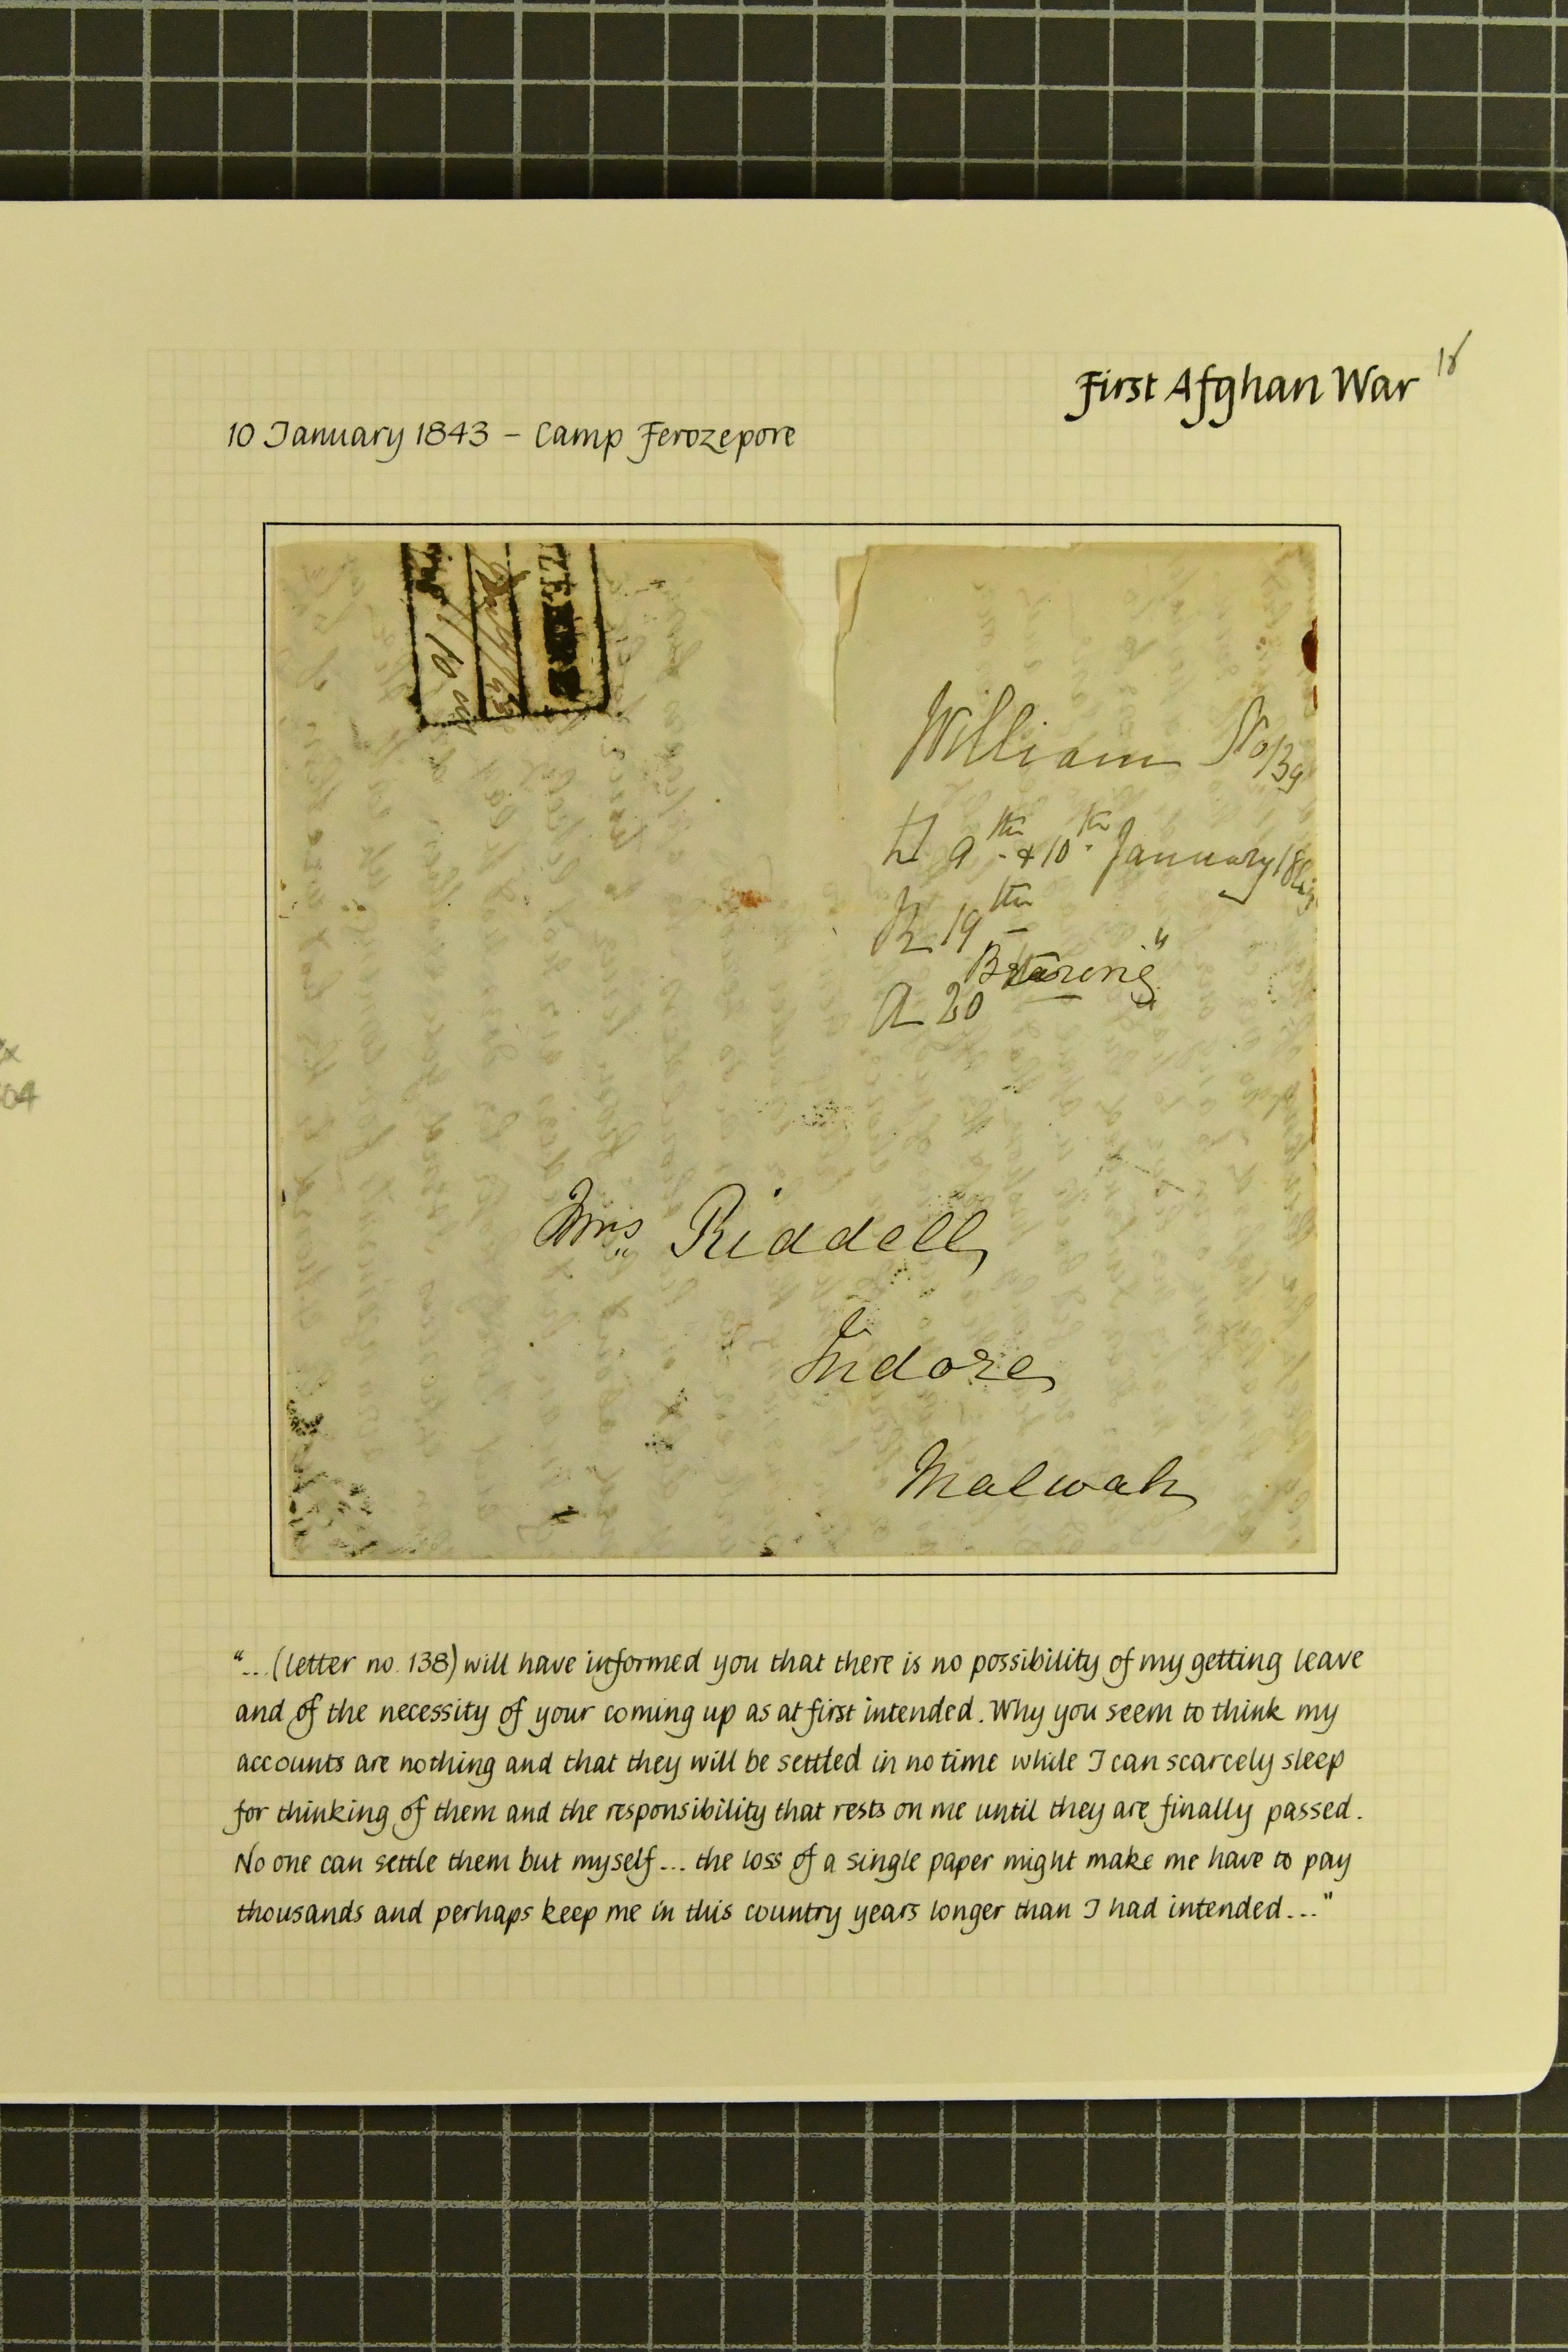 First Afghan War
18
10 January 1843 – Camp Ferozepore
10
William No 139
9th & 10th January 184
R 19th
Bearing
A 20
Mrs Riddell
Indore
Malwah
04
"...(letter no. 138) will have informed you that there is no possibility of my getting leave
and of the necessity of your coming up as at first intended. Why you seem to think my
accounts are nothing and that they will be settled in no time while I can scarcely sleep
for thinking of them and the responsibility that rests on me until they are finally passed.
No one can settle them but myself... the loss of a single paper might make me have to pay
thousands and perhaps keep me in this country years longer than I had intended..."